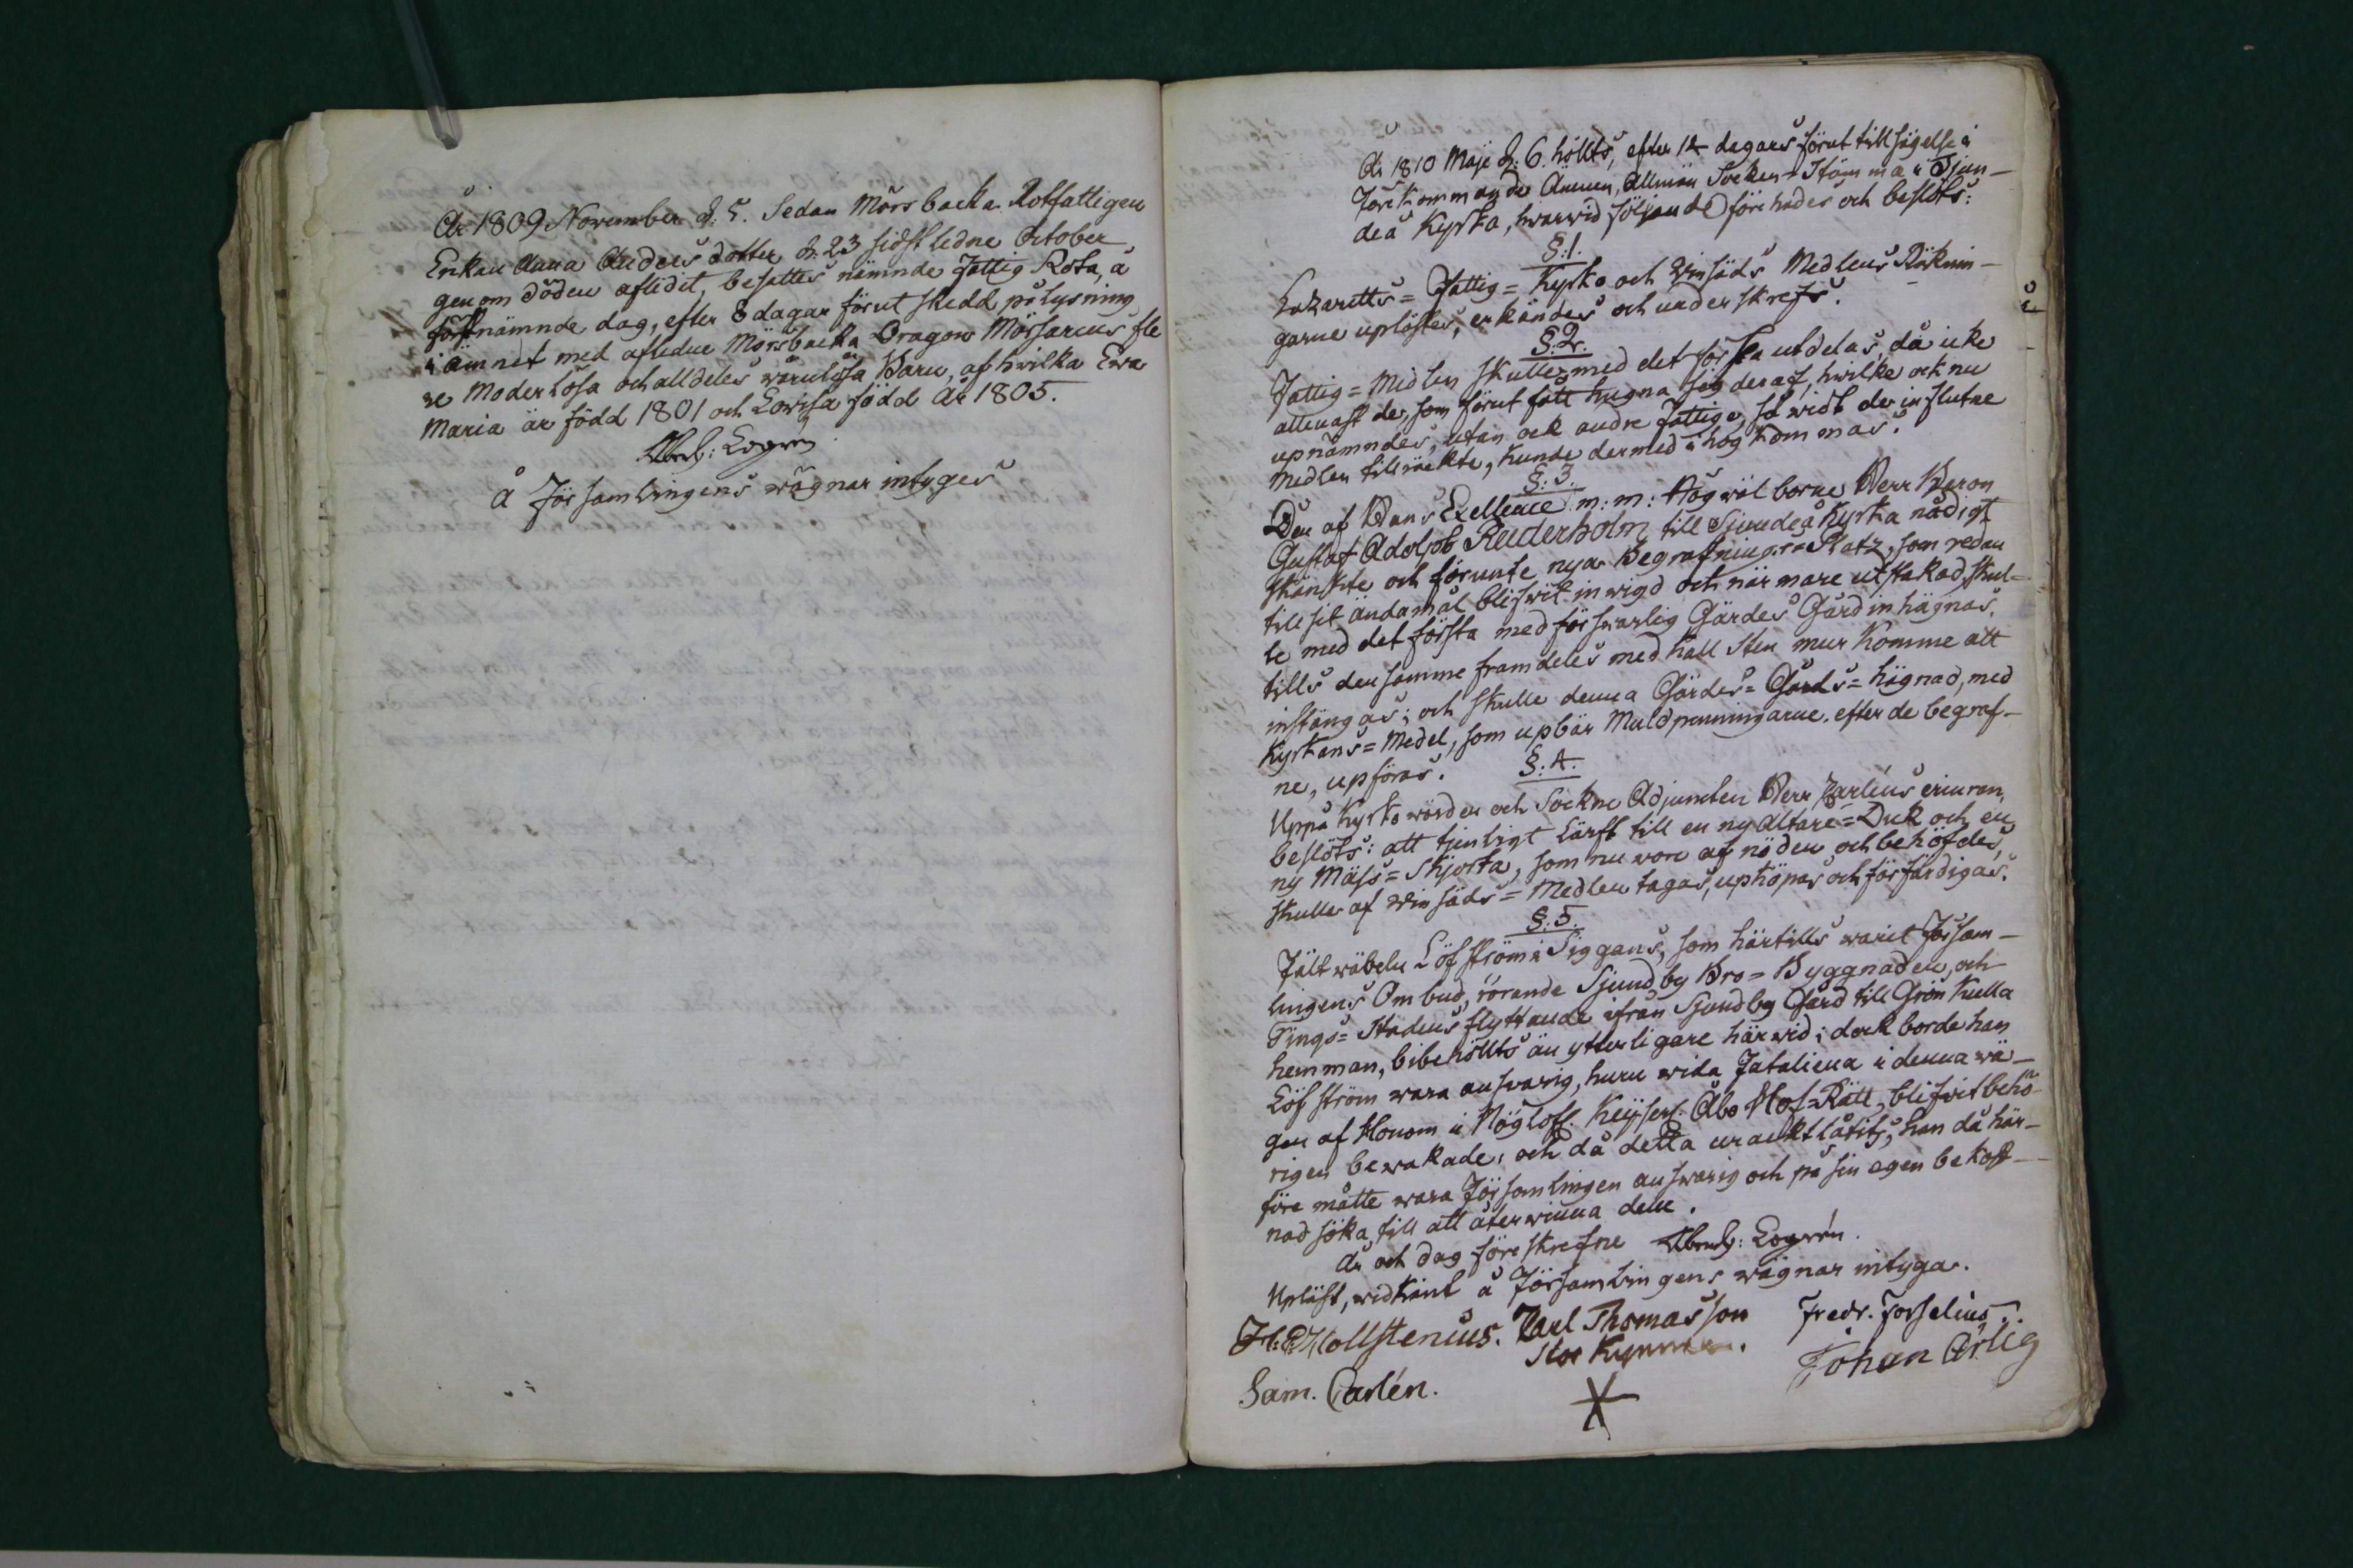 År 1809 November d. 5. Sedan Mörsbacka Rotfattigen
Enkan Anna Anders dotter d. 23 sidstledne October
genom döden aflidit, besattes nämnde Fattig Rota, å
förstnämnde dag, efter 8 dagar förut skedd pålysning
i ämnet med afledne Mörsbacka Dragon Mörsarcus fle
re Moderlösa och alldeles wårnlösa Barn, af hwilka Ewa
Maria är född 1801 och Lowisa född År 1805.
Abrah: Logrén
å Församlingens wägnar intyges
År 1810 Maje d. 6. höllts, efter 14 dagars förut tillsägelse i
förekommande Ämnen, Allmän Socken-Stämma i Sjun-
deå Kyrka, hwarwid följande förehades och beslöts:
§:1.
Lazaretts= Fattig= Kyrko och Winsäds Medlens Räknin-
garne uplästes, erkändes och underskrefs.
§:2.
Fattig=Medlen skulle med det första utdelas, då icke
allenast de, som förut fått hugna sig deraf, hwilke ock nu
upnämndes, utan ock andre Fattige, så widt de influtne
Medlen tillräckte, kunde dermed ihogkommas.
§:3.
Den af Hans Exellence m:m: Högwälborne Herr Baron
Gustaf Adolph Reuterholm till Sjundeå Kyrka nådigt
skänkte och förunte nya Begrafnings=Platz, som redan
till sit ändamål blifwit inwigd och närmare utstakad, skul-
le med det första med förswarlig Gärdes Gård inhägnas,
tills densamme framdeles med kall sten mur komme att
instängas; och skulle denna Gärdes=Gårds=hägnad, med
Kyrkans=Medel, som upbär Muldpenningarne efter de begraf-
ne, upföras.
§:4.
Uppå Kyrkowärden och Sockne Adjuncten Herr Carléns erinran,
beslöts: att tjenligt Lärft till en ny Altare=Duk och en
ny Mäss=Skjorta, som nu wore af nöden och behöfdes,
skulle af Winsäds=Medlen tagas, upköpas och förfärdigas.
§:5.
Fältwäbeln Löfström i Siggans, som härtills warit Församlingens
lingens Ombud, rörande Sjundby Bro=Byggnaden, och
Tings=Stadens flyttande ifrån Sjundby Gård till Grönkulla
hemman, bibehölls än ytterligare härwid; dock borde han
Löfström wara answarig, huru wida Fatalierna i denna wä-
gen af Honom i Högloff. Keijserl. Åbo Hof=Rätt, blifwit behö-
rigen bewakade; och då detta uraktlåtits, han då här-
före måtte wara Församlingen answarig och på sin egen bekost-
nad söka, till att återwinna dem.
År och dag föreskrefne Abrah: Logrén.
Upläst, widkänt å Församlingens wägnar intyga.
Carl Thomasson
Fredr. Forselius.
Stor Kyrmma
Johan Ärlig
Sam. Carlén.